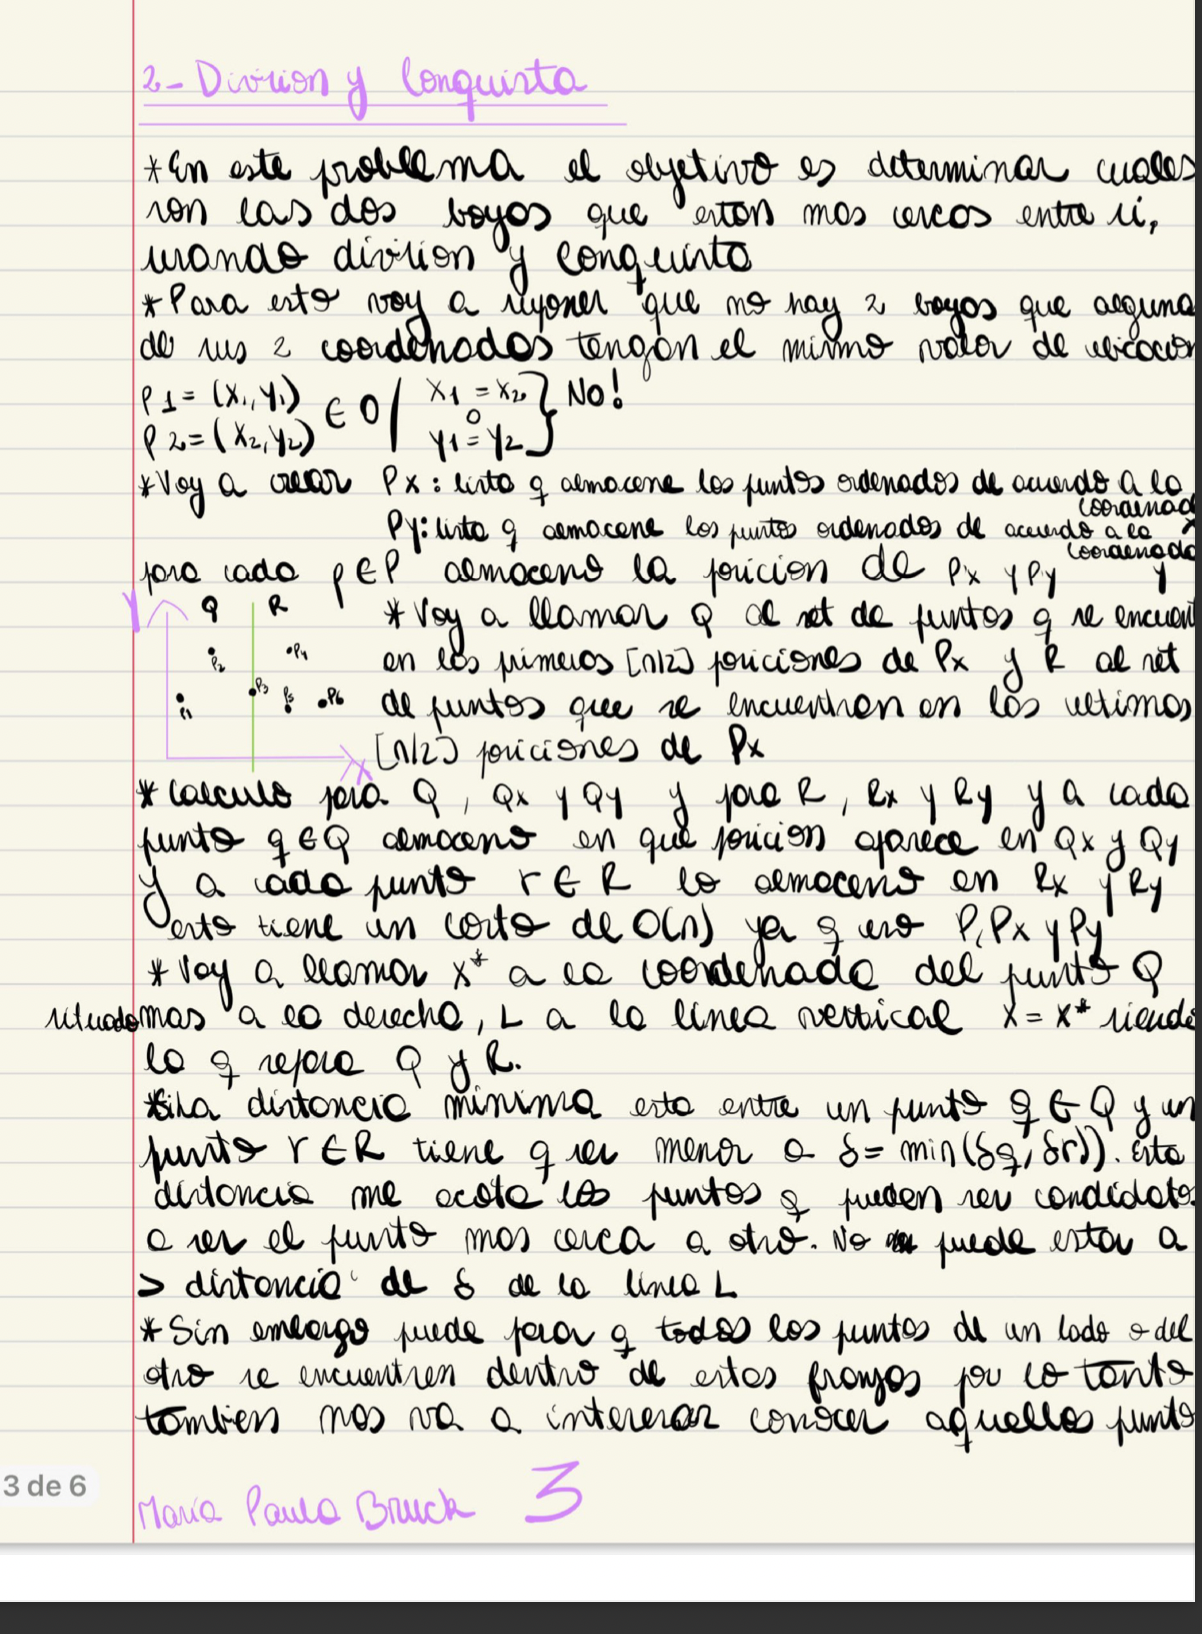 2- Division y Conquista
*En este problema el objetivo es determinar cuales
son las dos boyas que estan mas cercas entre si,
usando division y conquista
*Para esto voy a suponer que no hay 2 boyas que alguna
de sus 2 coordenadas tengan el mismo valor de ubicacion
P1 = (x1, y1)
P2 = (x2, y2) ∈ O / x1 = x2 o y1 = y2 } No!
*Voy a crear Px: lista q almacene los puntos ordenados de acuerdo a la coordenad x
Py: lista q almacene los puntos ordenados de acuerdo a la coordenada y
para cada p ∈ P almaceno la posicion de Px y Py
Y Q R
P2 P4
P3 P5 P6
P1
X
* Voy a llamar Q al set de puntos q se encuent
en las primeras [n/2] posiciones de Px y R al set
de puntos que se encuentran en las ultimas
[n/2] posiciones de Px
* Calculo para Q, Qx y Qy y para R, Rx y Ry y a cada
punto q ∈ Q almaceno en que posicion aparece en Qx y Qy
y a cada punto r ∈ R lo almaceno en Rx y Ry
esto tiene un costo de O(n) ya q uso P, Px y Py
* Voy a llamar x* a la coordenada del punto Q
situado mas a la derecha, L a la linea vertical x = x* siendo
la q separa Q y R.
*Si la distancia minima esta entre un punto q ∈ Q y un
punto r ∈ R tiene q ser menor a δ = min(δq, δr)). Esta
distancia me acota los puntos q pueden ser candidatos
a ser el punto mas cerca a otro. No puede estar a
> distancia de δ de la linea L
* Sin embargo puede pasar q todos los puntos de un lado o del
otro se encuentren dentro de estas franjas por lo tanto
tambien nos va a interesar conocer aquellos punto
3 de 6
Maria Paula Bruck 3